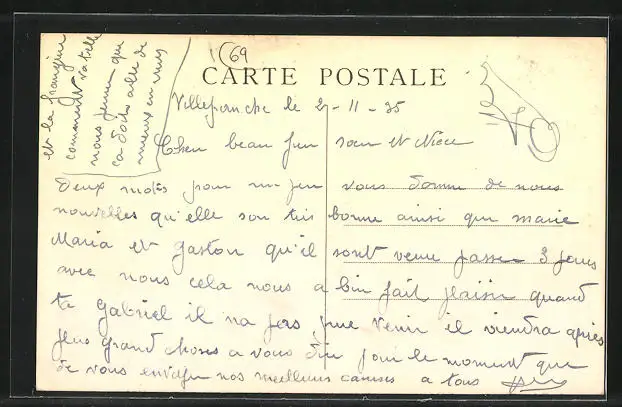 (69
CARTE POSTALE
Villefranche le 2-11-35
Cher beau frere soeur et Niece
Deux mots pour un peu vous donné de nous
nouvelles qu'elle son tris bonne ainsi que marie
Maria et gaston qu'il sont venu passer 3 jours
avec nous cela nous a bin fait plaisir quand
ta gabriel il na pas pue venir il viendra après
plus grand choses a vous dir pour le moment que
de vous envoyer nos meilleurs a tous
et la frangine
comment va telle
nous que
ca doits alle de
mieux en mieux